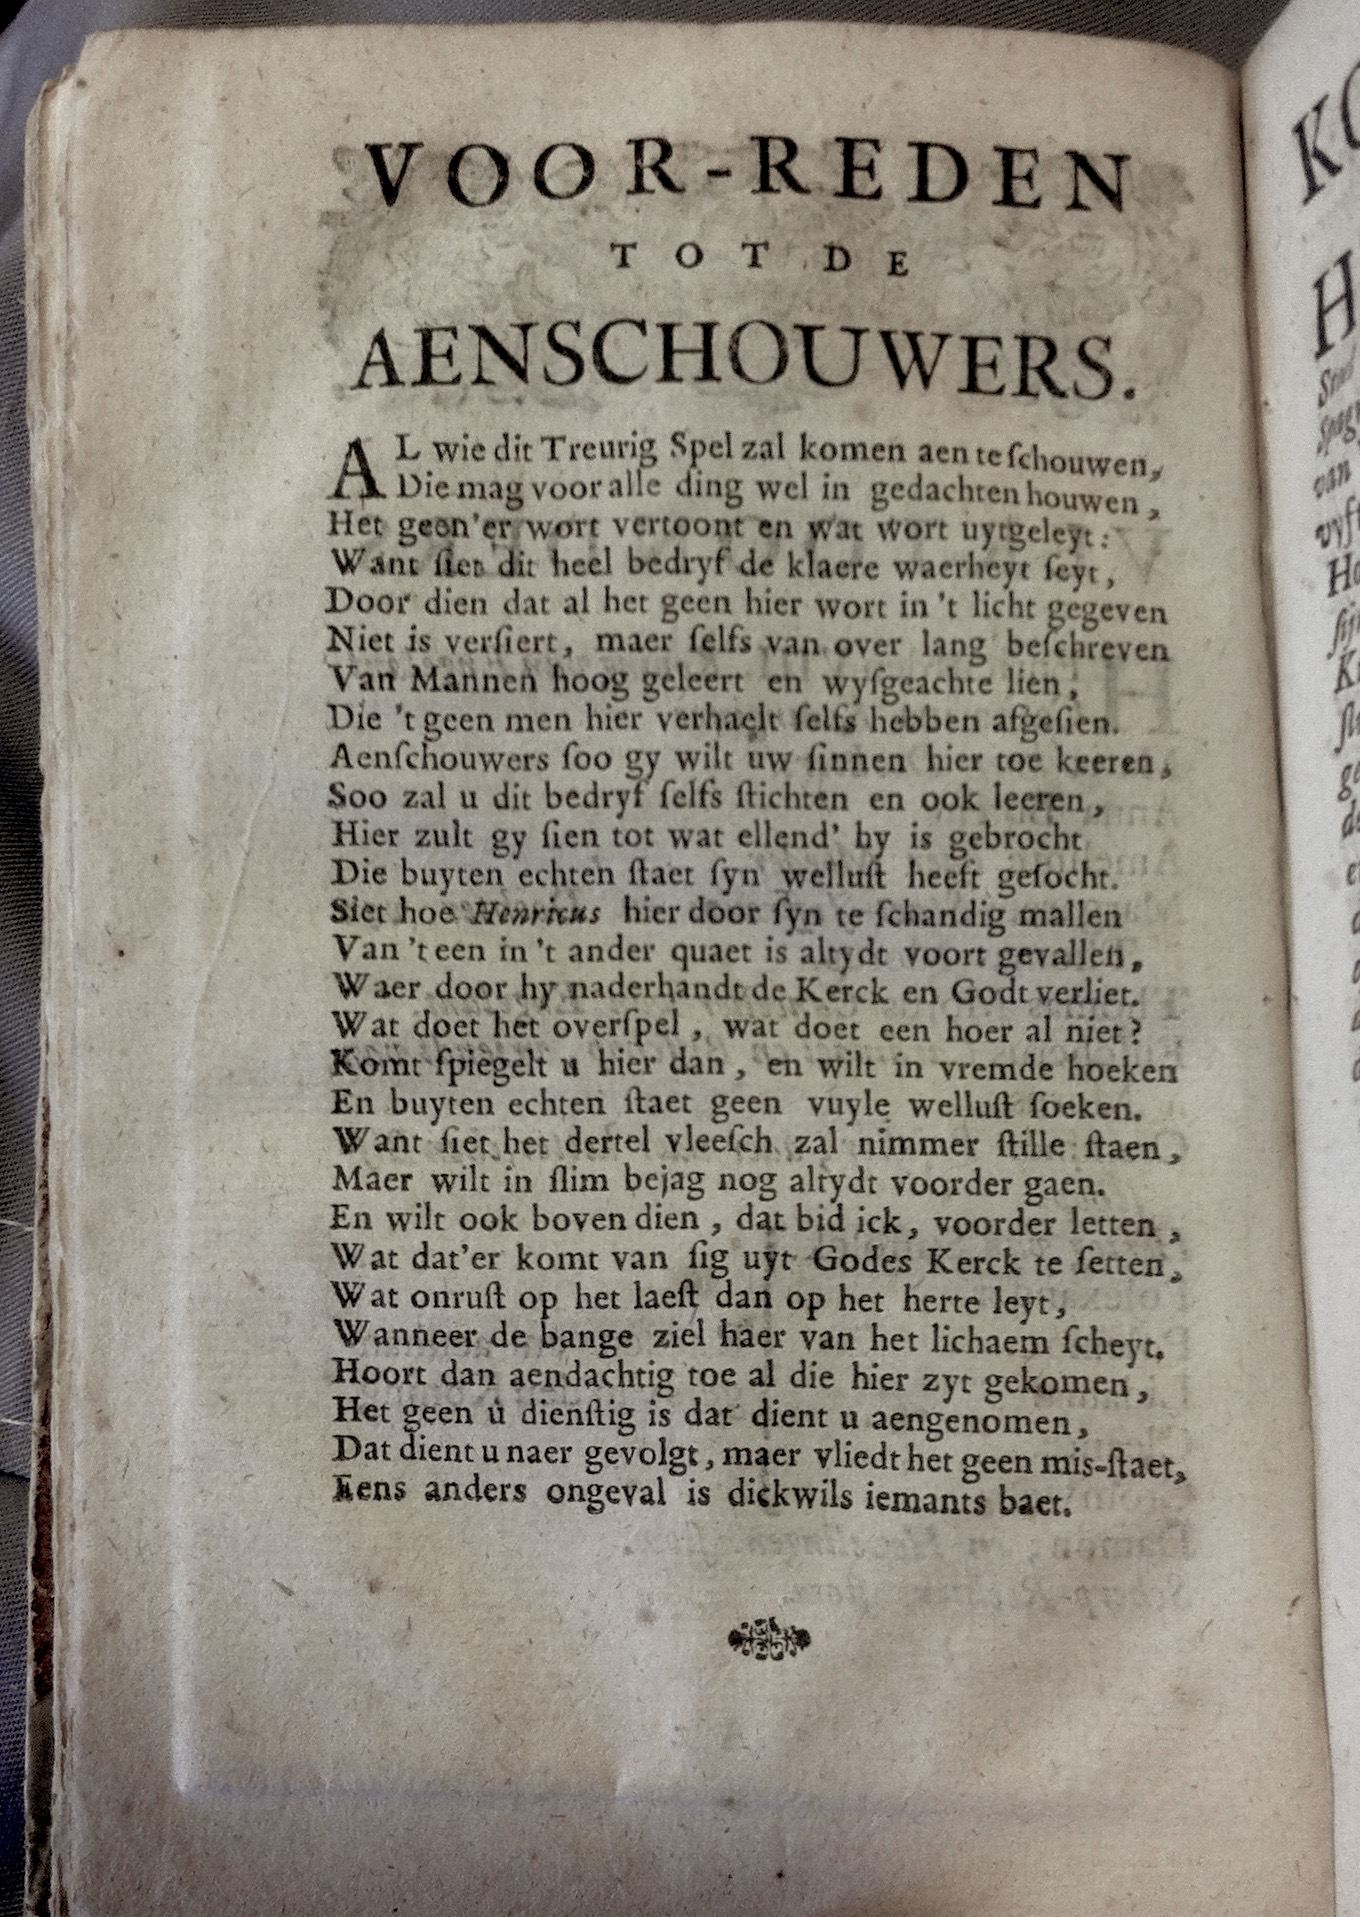 VOOR-REDEN
TOT DE
AENSCHOUWERS.
AL wie dit Treurig Spel zal komen aen te ſchouwen,
Die mag voor alle ding wel in gedachten houwen,
Het geen'er wort vertoont en wat wort uytgeleyt:
Want ſiet dit heel bedryf de klaere waerheyt ſeyt,
Door dien dat al het geen hier wort in 't licht gegeven
Niet is verſiert, maer ſelfs van over lang beſchreven
Van Mannen hoog geleert en wyſgeachte lien,
Die 't geen men hier verhaelt ſelfs hebben afgeſien.
Aenſchouwers ſoo gy wilt uw ſinnen hier toe keeren,
Soo zal u dit bedryf ſelfs ſtichten en ook leeren,
Hier zult gy ſien tot wat ellend' hy is gebrocht
Die buyten echten ſtaet ſyn welluſt heeft geſocht.
Siet hoe Henricus hier door ſyn te ſchandig mallen
Van 't een in 't ander quaet is altydt voort gevallen,
Waer door hy naderhandt de Kerck en Godt verliet.
Wat doet het overſpel, wat doet een hoer al niet?
Komt ſpiegelt u hier dan, en wilt in vremde hoeken
En buyten echten ſtaet geen vuyle welluſt ſoeken.
Want ſiet het dertel vleeſch zal nimmer ſtille ſtaen,
Maer wilt in ſlim bejag nog altydt voorder gaen.
En wilt ook boven dien, dat bid ick, voorder letten,
Wat dat'er komt van ſig uyt Godes Kerck te ſetten,
Wat onruſt op het laeſt dan op het herte leyt,
Wanneer de bange ziel haer van het lichaem ſcheyt.
Hoort dan aendachtig toe al die hier zyt gekomen,
Het geen u dienſtig is dat dient u aengenomen,
Dat dient u naer gevolgt, maer vliedt het geen mis-ſtaet,
Eens anders ongeval is dickwils iemants baet.
KO
H
van